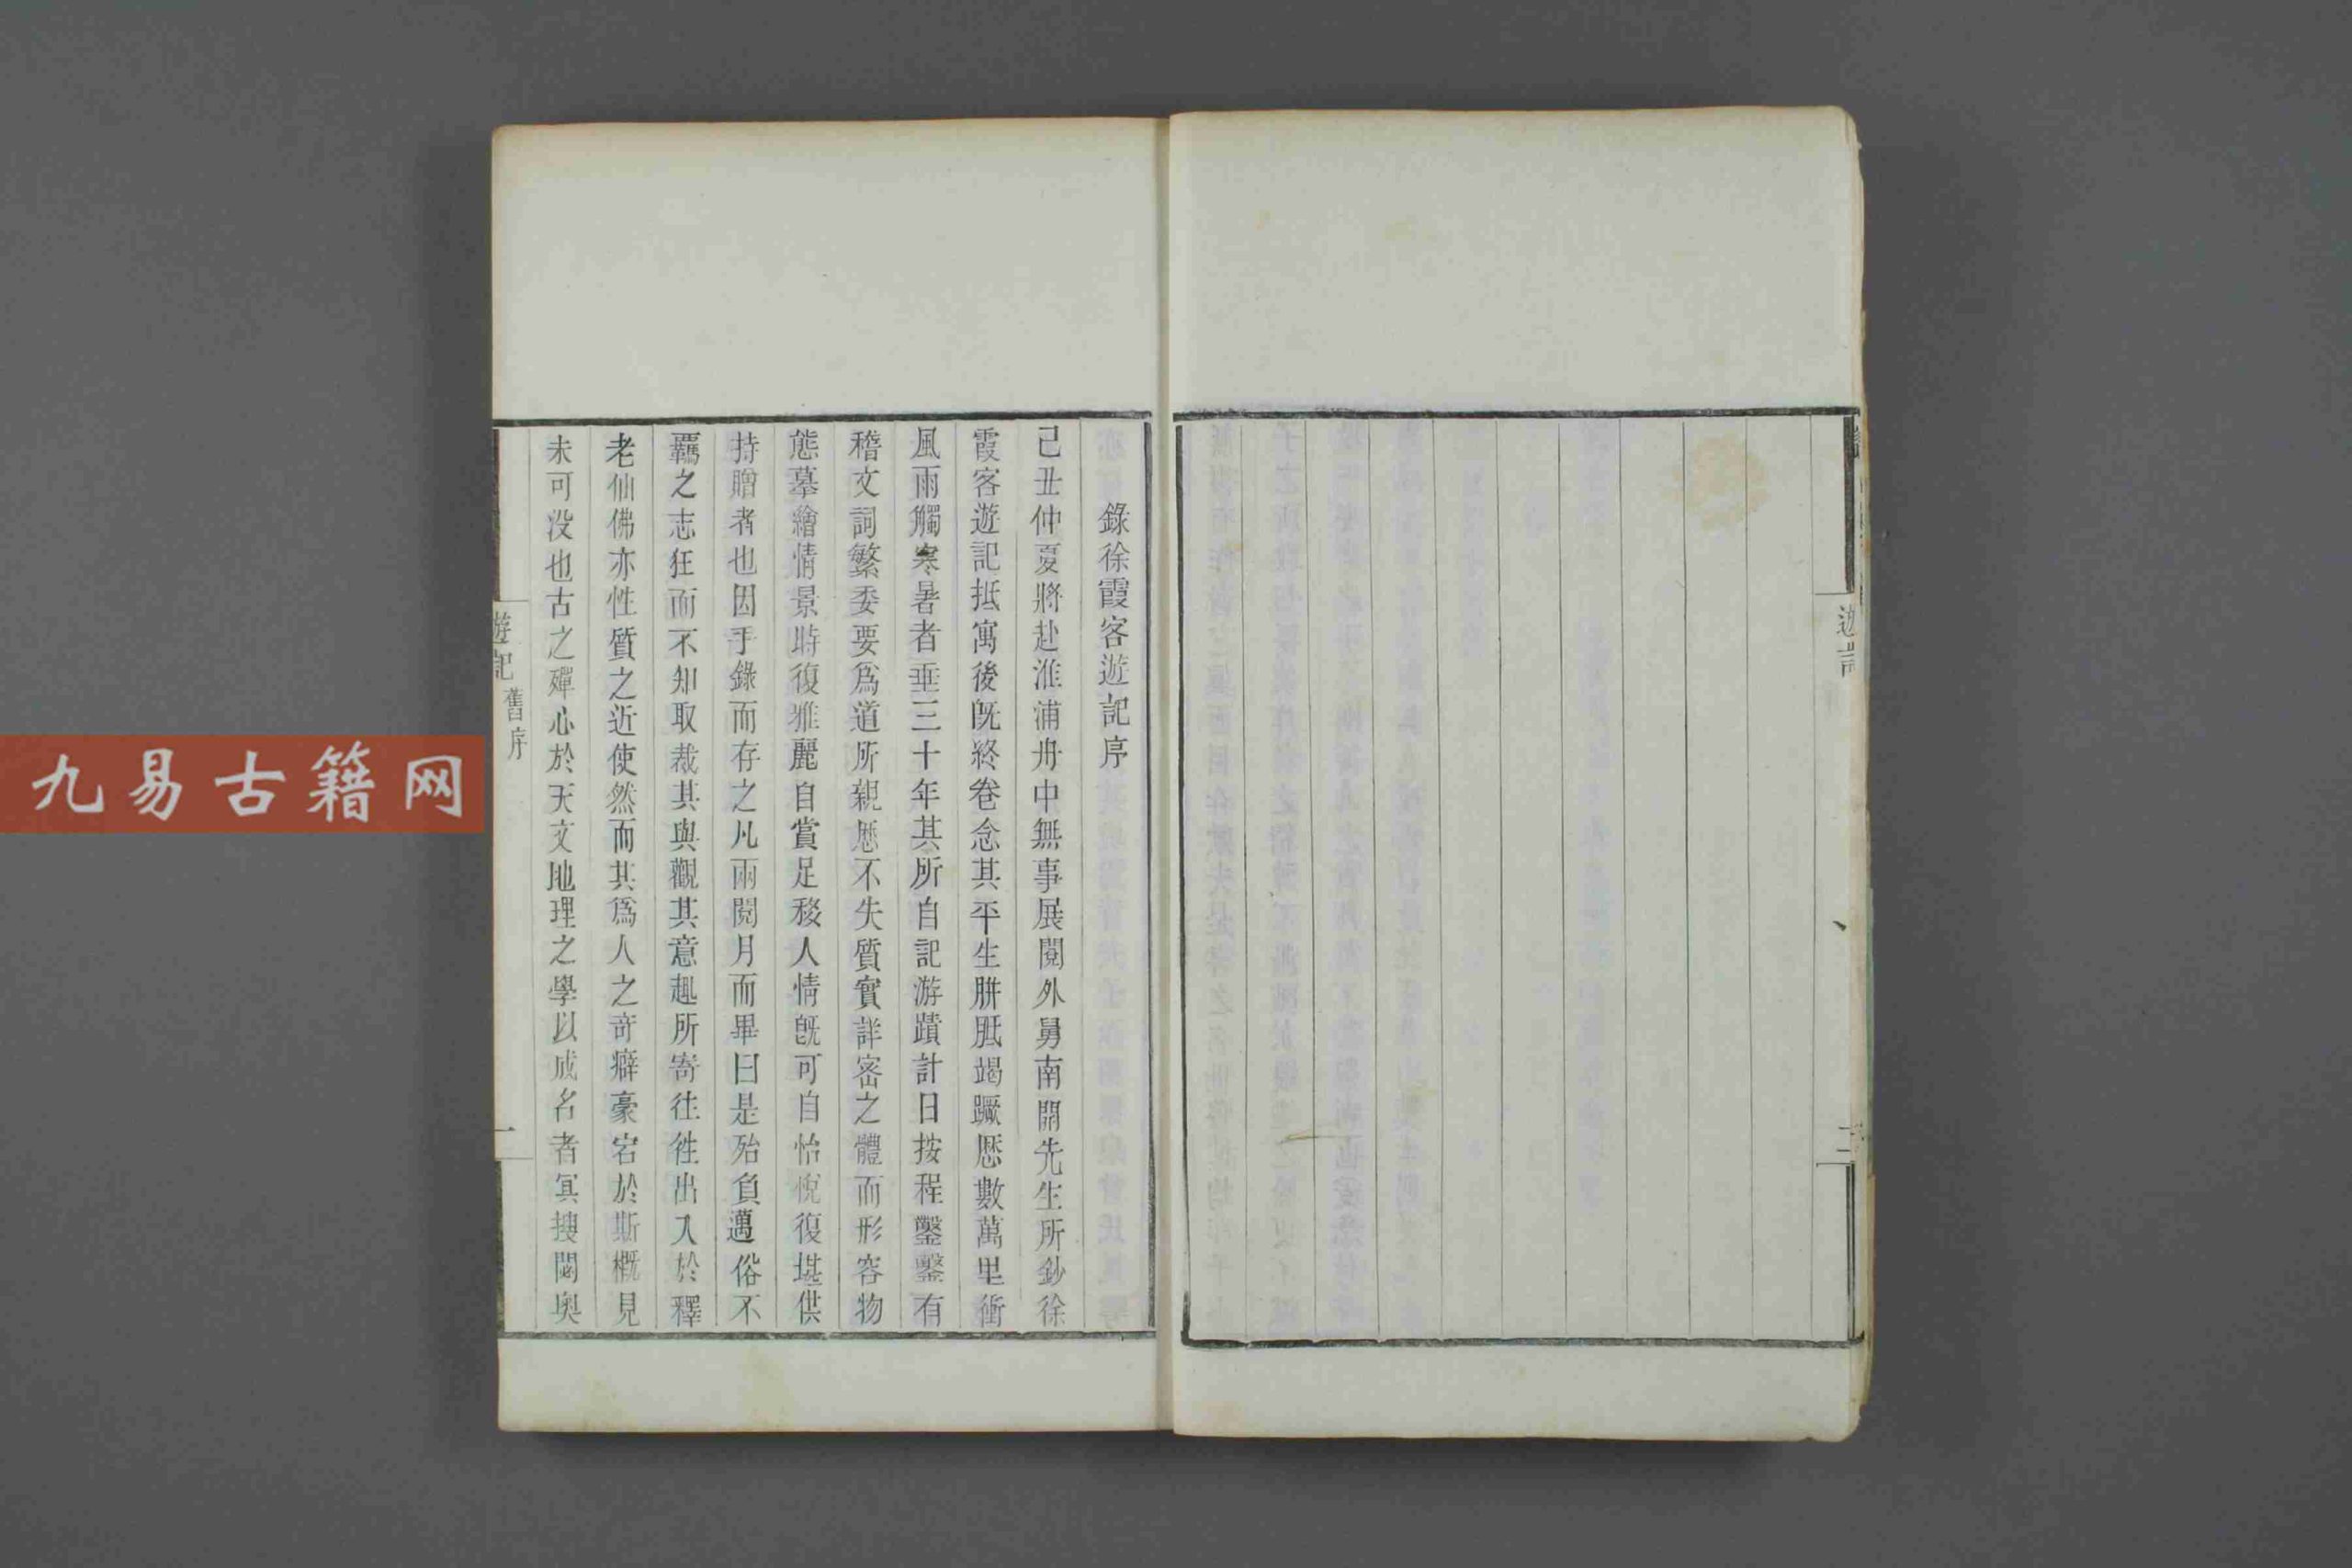 遊記
二
錄徐霞客遊記序
己丑仲夏將赴淮浦舟中無事展閱外舅南開先生所鈔徐
霞客遊記抵寓後旣終卷念其平生胼胝竭蹶歷數萬里衝
風雨觸寒暑者垂三十年其所自記游蹟計日按程鑿鑿有
稽文詞繁委要爲道所親歷不失質實詳密之體而形容物
態摹繪情景時復雅麗自賞足移人情旣可自怡悅復堪供
持贈者也因手錄而存之凡兩閱月而畢曰是殆負邁俗不
羈之志狂而不知取裁其與觀其意趣所寄往往出入於釋
老仙佛亦性質之近使然而其爲人之奇癖豪宕於斯槪見
未可没也古之殫心於天文地理之學以成名者冥搜閫奥
遊記
舊序
一
九易古籍网